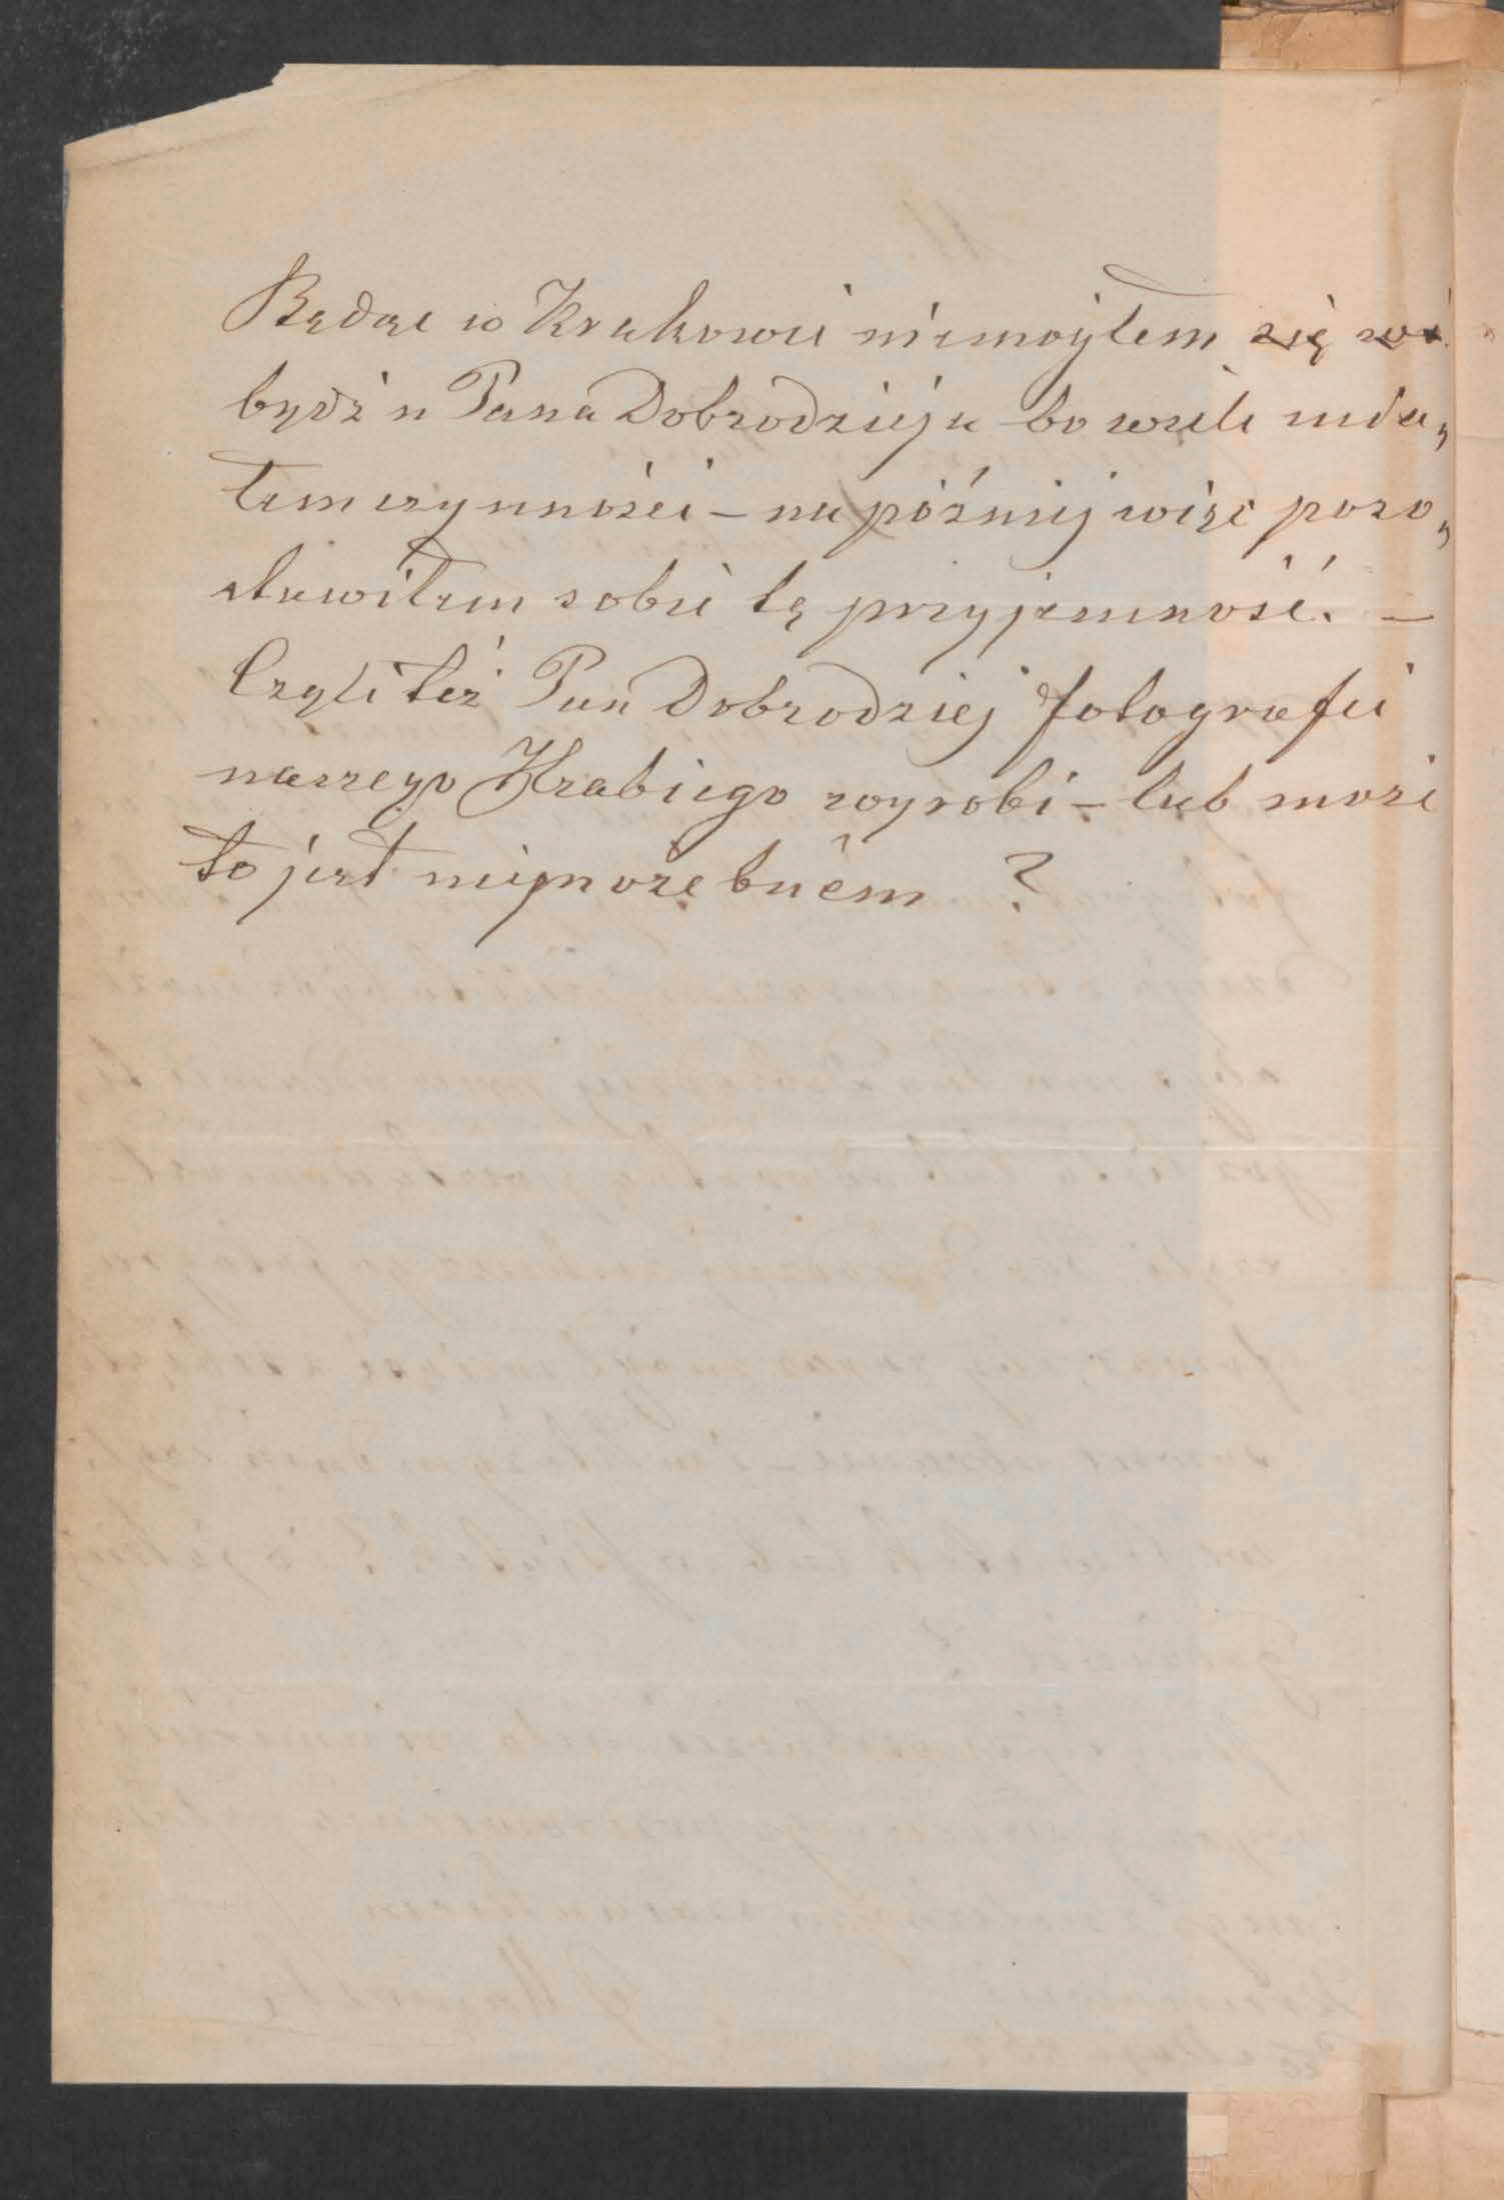 Będąc w Krakowie niemogłem się
bydź u Pana Dobrodzieja bo wiele mia„
łem czynności – na późniéj więc pozo„
stawiłem sobie tę przyjemność. –
Czyli też Pan Dobrodziej fotografii
naszego Hrabiego wyrobi – lub może
to jest niemożebném ?